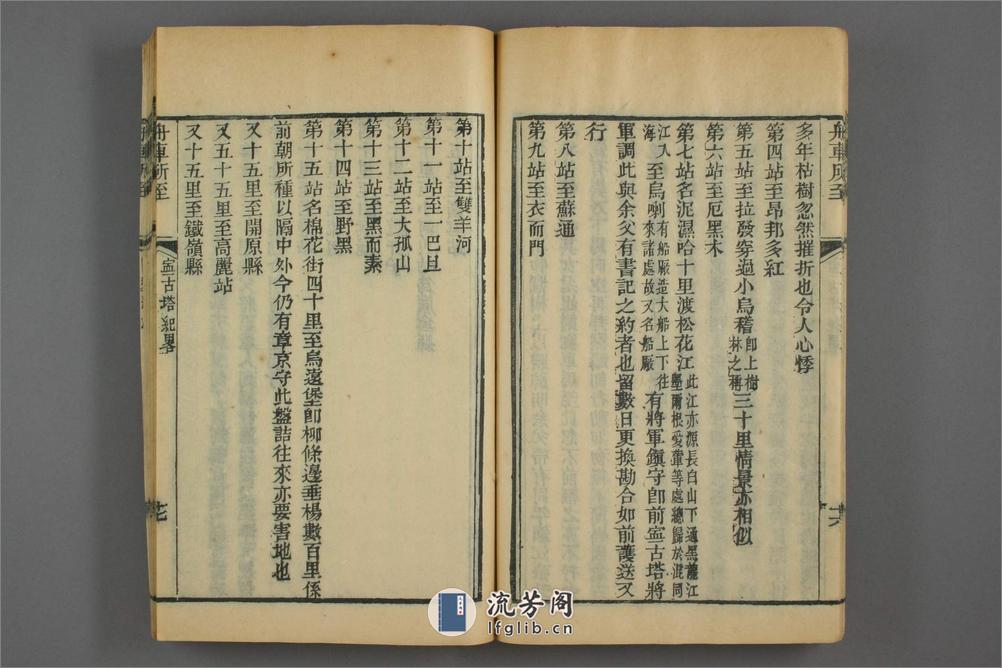 舟車所至
多年枯樹忽然摧折也令人心悸
第四站至昂邦多紅
第五站至拉發穿過小烏稽即上樹林之稱三十里情景亦相似
第六站至厄黑木
第七站名泥濕哈十里渡松花江此江亦源長白山下通黑龍江墨爾根愛葷等處總歸於混同
江入海至烏喇有船厰造大船上下往來諸處故又名船厰有將軍鎮守卽前寍古塔將
軍調此與余父有書記之約者也留數日更換勘合如前護送又
行
第八站至蘇通
第九站至衣而門
第十站至雙羊河
第十一站至一巴旦
第十二站至大孤山
第十三站至黑而素
第十四站至野黑
第十五站名棉花街四十里至烏遠堡卽柳條邊垂楊數百里係
前朝所種以隔中外今仍有章京守此盤詰往來亦要害地也
又十五里至開原縣
又五十五里至高麗站
又十五里至鐵嶺縣
舟車所至
寍古塔紀畧
流芳阁
lfglib.cn